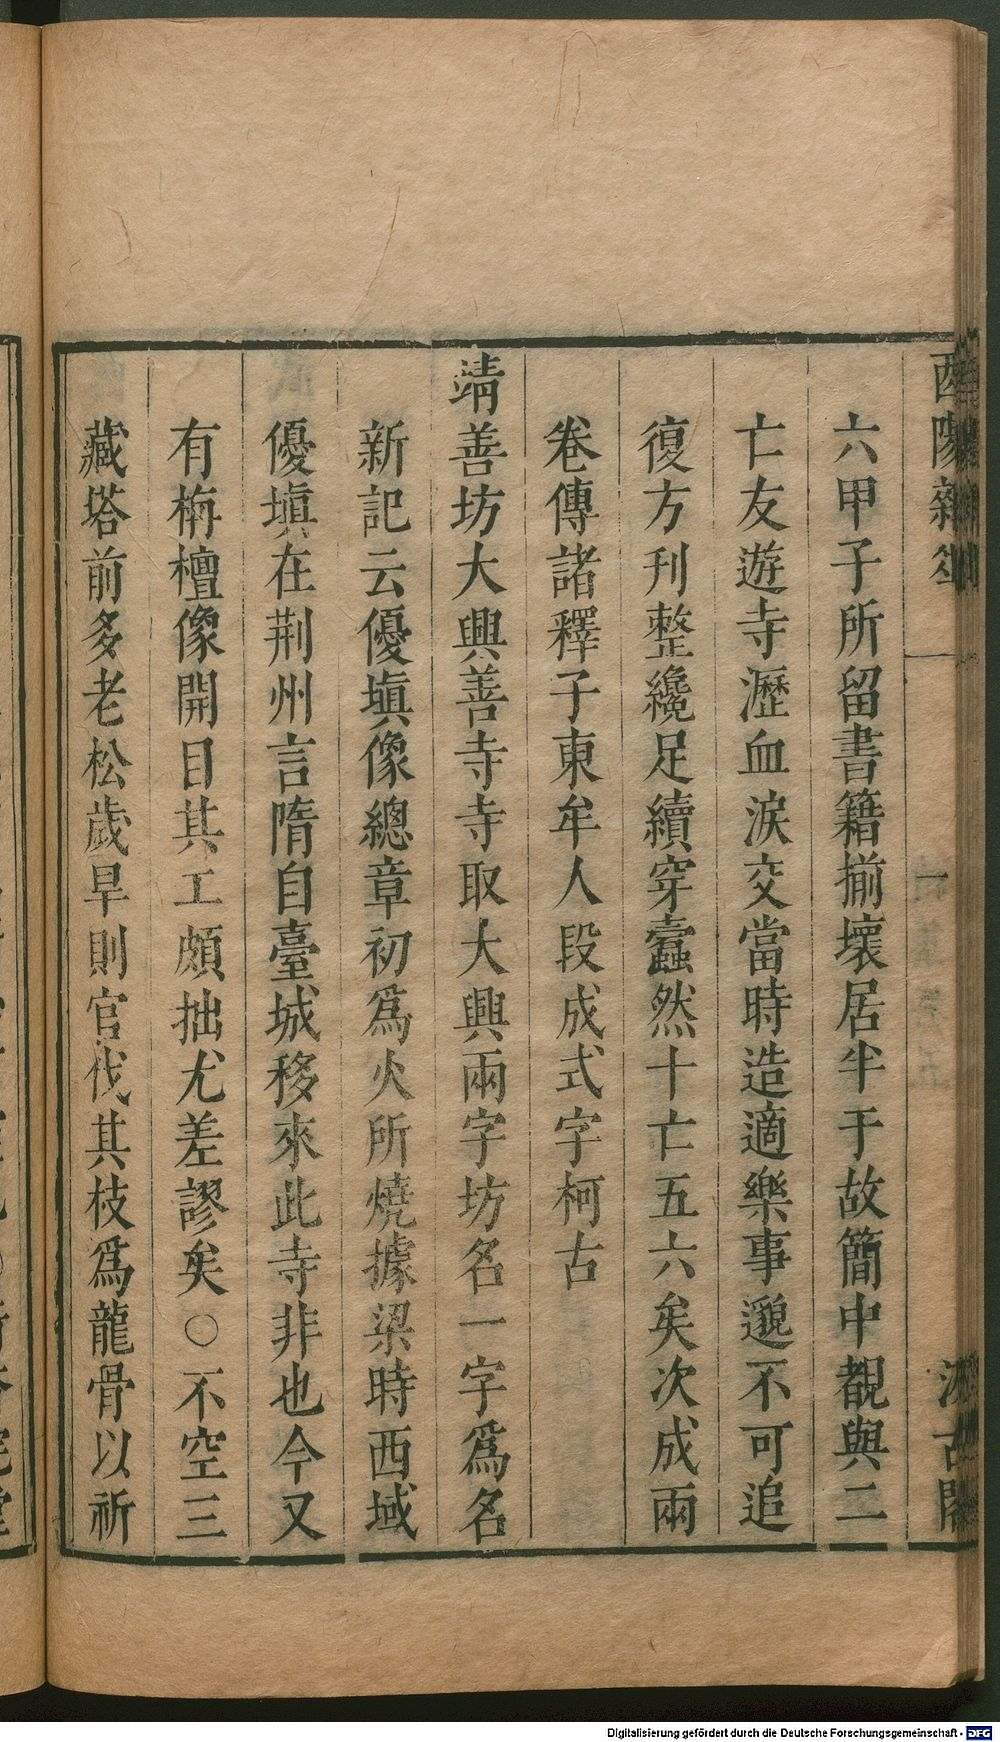 酉陽雜俎 一 汲古閣
六甲子所留書籍揃壞居半于故簡中覩與二
亡友遊寺瀝血淚交當時造適樂事邈不可追
復方刊整纔足續穿蠹然十亡五六矣次成兩
卷傳諸釋子東牟人段成式字柯古
靖善坊大興善寺寺取大興兩字坊名一字爲名
新記云優塡像總章初爲火所燒據梁時西域
優塡在荆州言隋自臺城移來此寺非也今又
有栴檀像開目其工頗拙尤差謬矣○不空三
藏塔前多老松歲旱則官伐其枝爲龍骨以祈
Digitalisierung gefördert durch die Deutsche Forschungsgemeinschaft - DFG